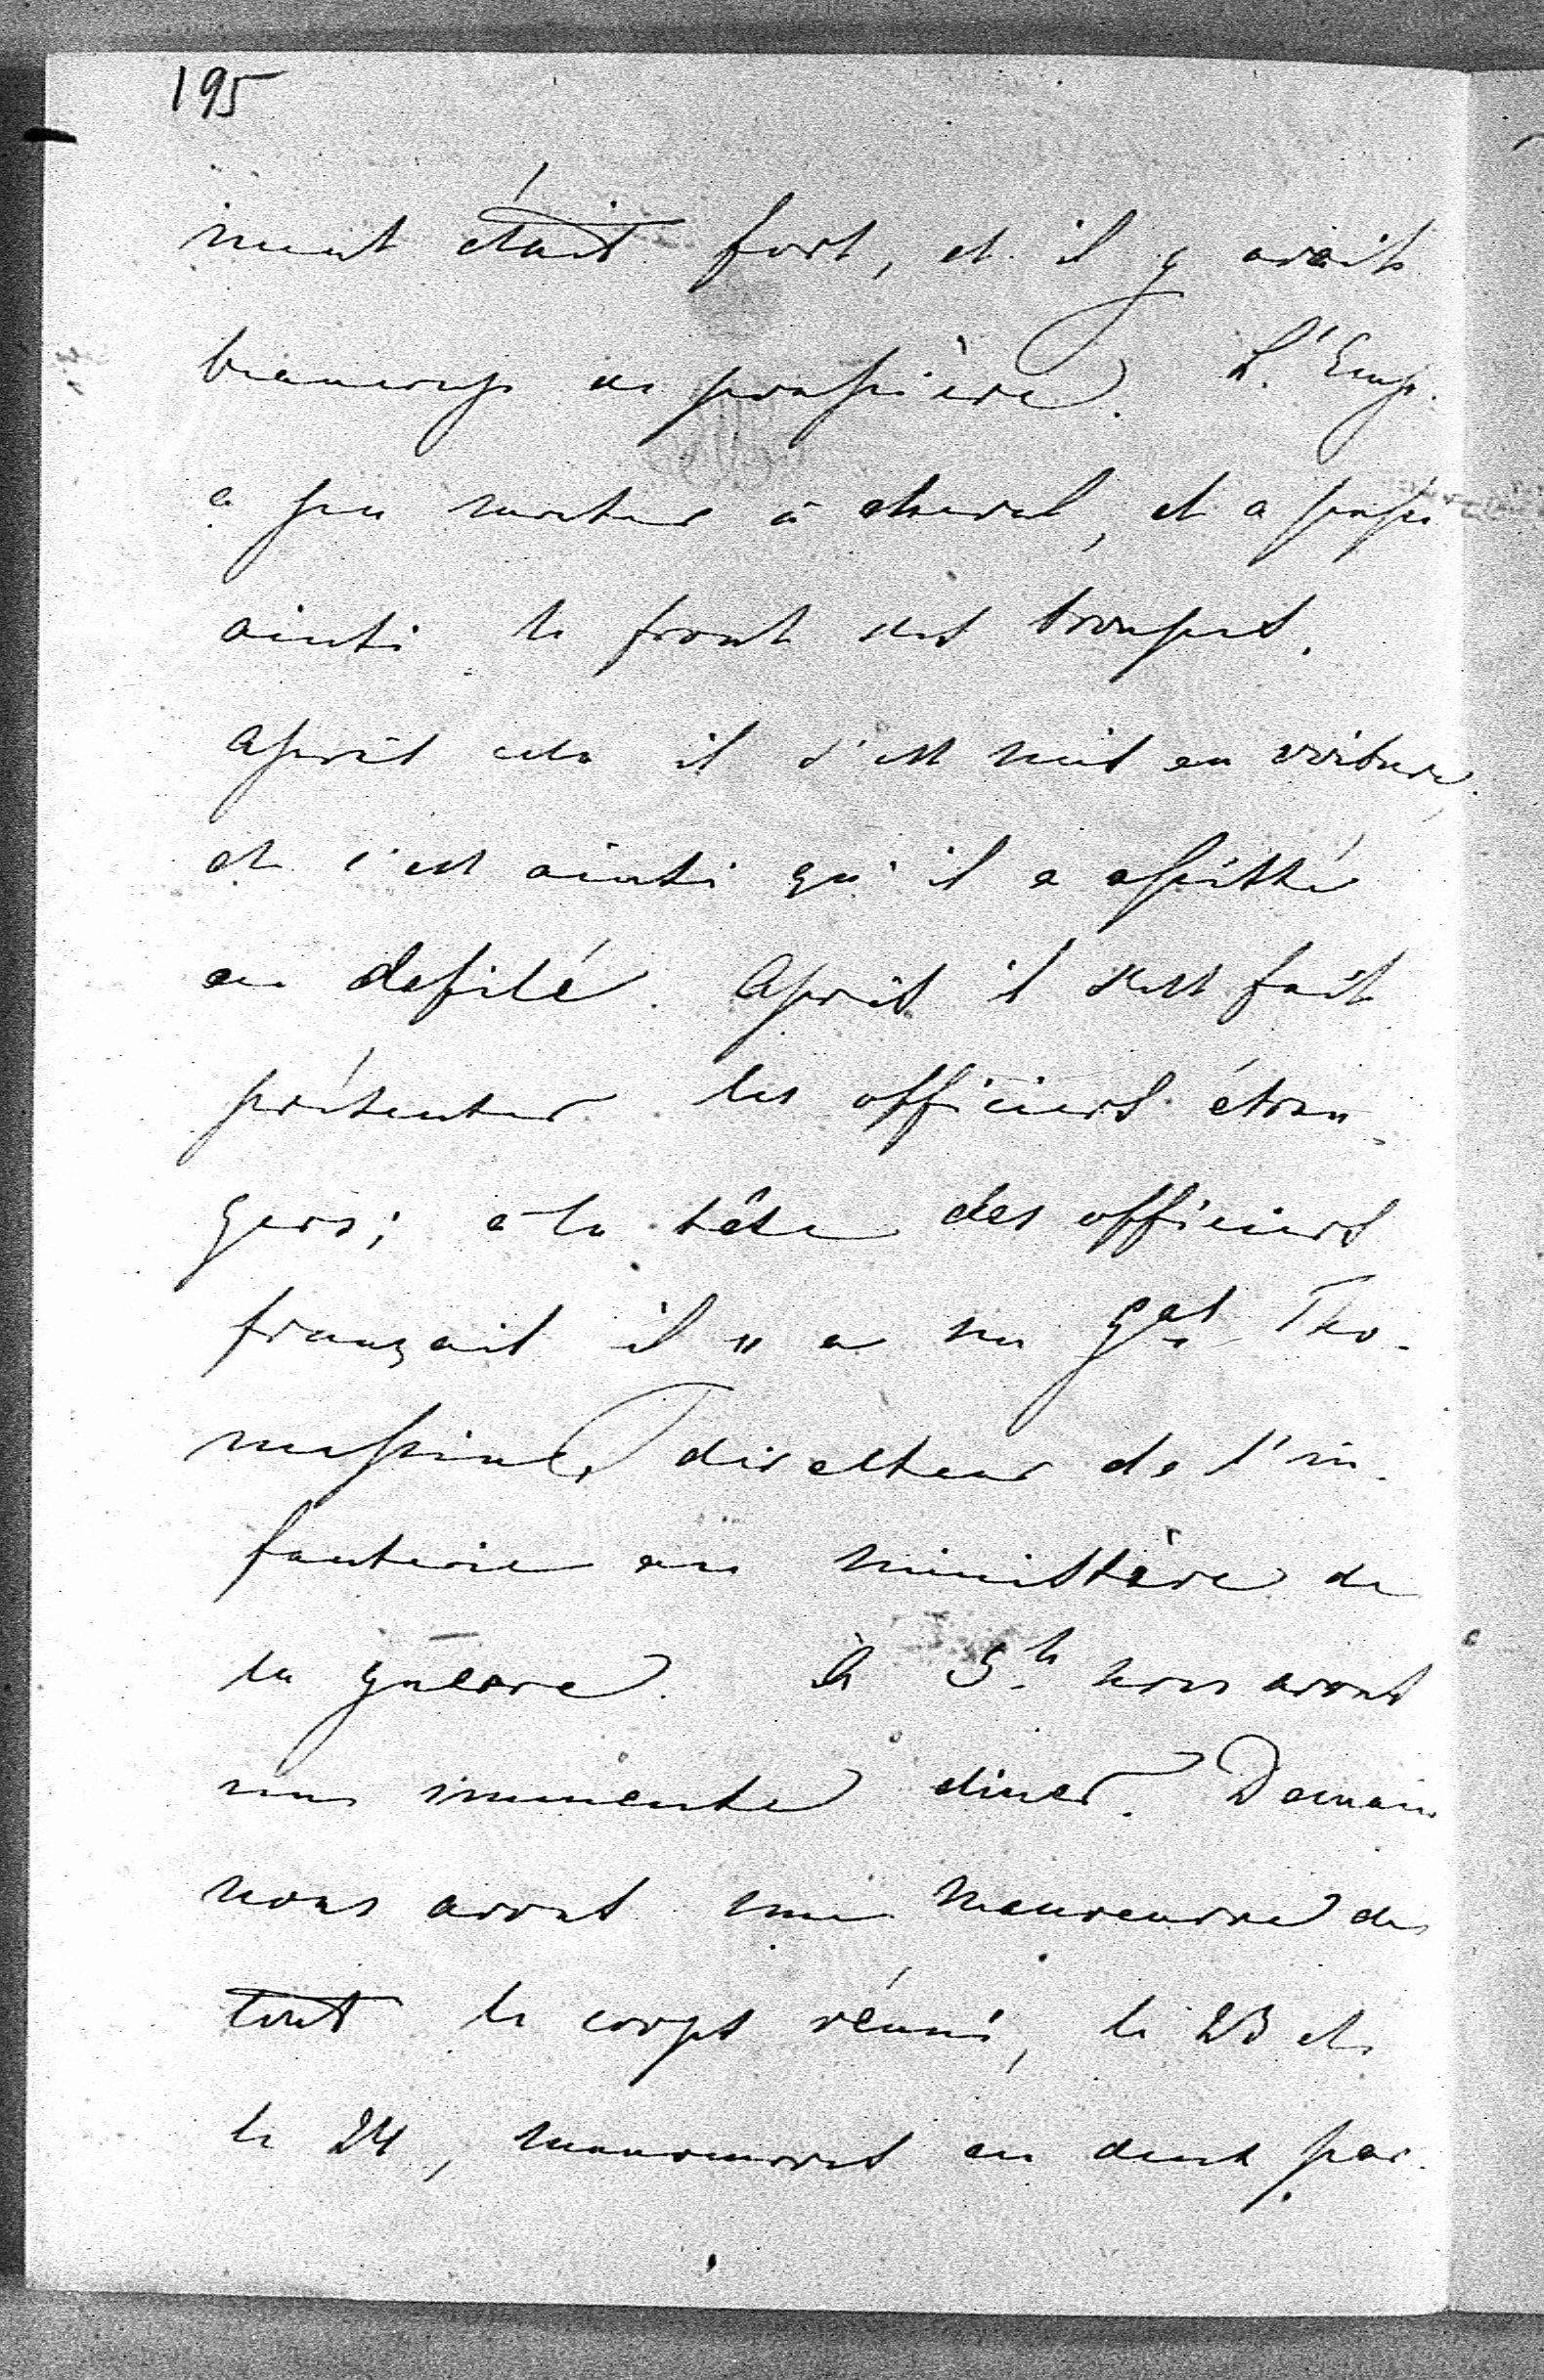 195
ment était fort, et il y avait
beaucoup de poussière. L'Emp.
a pu monter à cheval, et a passé
ainsi le front des troupes.
Après cela il s'est mis en voiture,
et c'est ainsi qu'il a assisté
au defilé. Après il s'est fait
présenter les officiers étran-
gers; à la tête des officiers
français il y a un Gal Tho-
massin directeur de l'in-
fanterie au ministère de
la guerre. À 5h nous avons
un immense diner. Demain
nous avons une manœuvre de
tout le corps réuni, le 23 et
le 24, manœuvres en deux par-